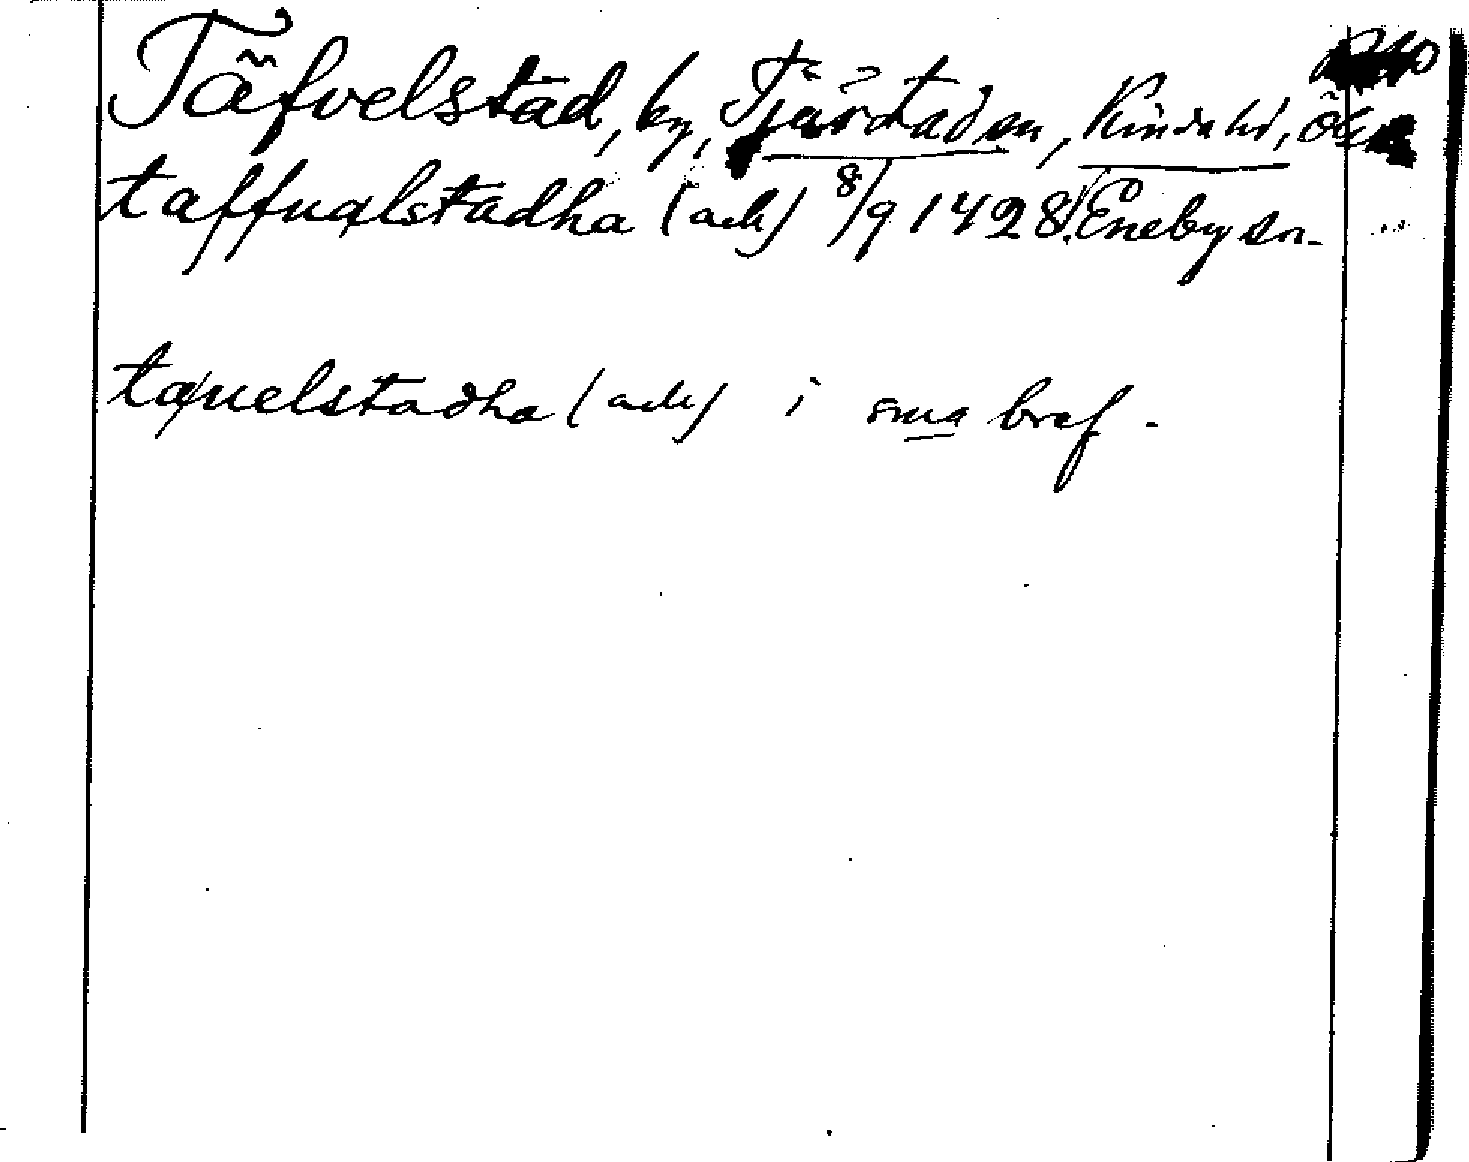 Täfvelstad, by, Tjärstad sn, Kinda hd, Ög
taffuælstadha (ack) 8/9 1428. Eneby sn.
tæuelstadha (ack) i sma bref.